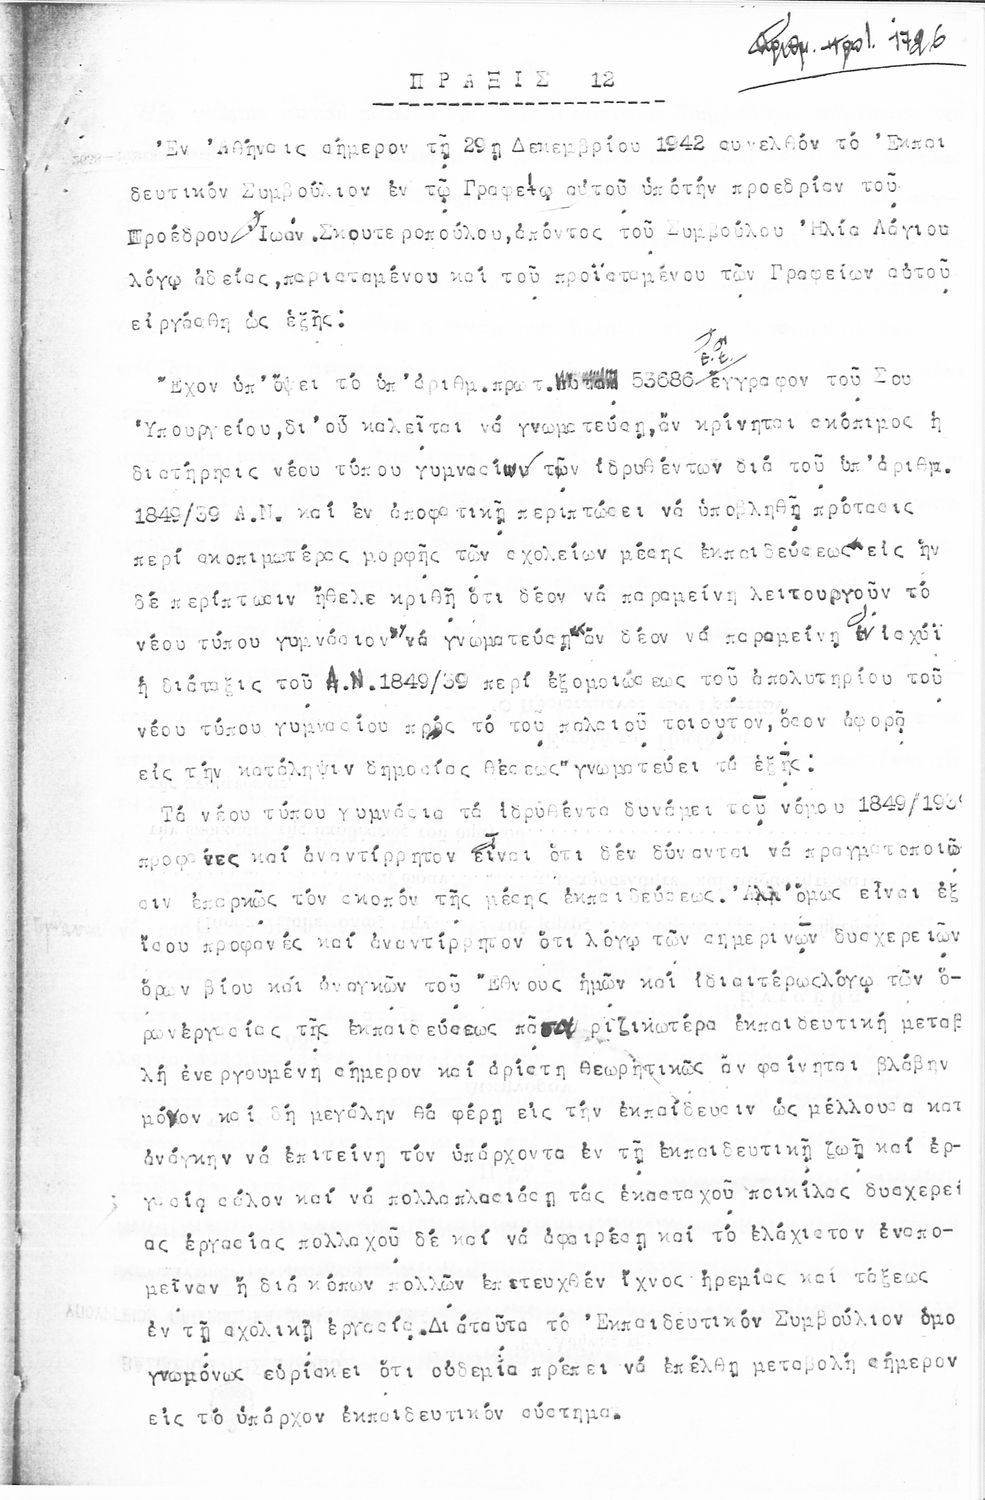 Ἀριθμ. πρωτ. 1726
ΠΡΑΞΙΣ 12
Ἐν Ἀθήναις σήμερον τῇ 29ῃ Δεκεμβρίου 1942 συνελθόν τό Ἐκπαι
δευτικόν Συμβούλιον ἐν τῷ Γραφείῳ αὐτοῦ ὑπότήν προεδρίαν τοῦ
Προέδρου Ἰωάν.Σκουτεροπούλου,ἀπόντος τοῦ Συμβούλου Ἠλία Λάγιου
λόγῳ ἀδείας,παρισταμένου καί τοῦ προϊσταμένου τῶν Γραφείων αὐτοῦ
εἰργάσθη ὡς ἑξῆς:
Ἔχον ὑπ'ὄψει τό ὑπ'ἀριθμ.πρωτ. 53686 ἔγγραφον τοῦ Σου
Ε.Ε.
Ὑπουργείου,δι'οὗ καλεῖται νά γνωματεύσῃ,ἄν κρίνηται σκόπιμος ἡ
διατήρησις νέου τύπου γυμνασίων τῶν ἱδρυθέντων διά τοῦ ὑπ'ἀριθμ.
1849/39 Α.Ν. καί ἐν ἀποφατικῇ περιπτώσει νά ὑποβληθῇ πρότασις
περί σκοπιμωτέρας μορφῆς τῶν σχολείων μέσης ἐκπαιδεύσεως εἰς ἥν
δέ περίπτωσιν ἤθελε κριθῇ ὅτι δέον νά παραμείνῃ λειτουργοῦν τό
νέου τύπου γυμνάσιον"νά γνωματεύσῃ"ἄν δέον νά παραμείνῃ ἐν ἰσχύϊ
ἡ διάταξις τοῦ Α.Ν.1849/39 περί ἐξομοιώσεως τοῦ ἀπολυτηρίου τοῦ
νέου τύπου γυμνασίου πρός τό τοῦ παλαιοῦ τοιοῦτον,ὅσον ἀφορᾷ
εἰς τήν κατάληψιν δημοσίας θέσεως"γνωματεύει τά ἑξῆς:
Τά νέου τύπου γυμνάσια τά ἱδρυθέντα δυνάμει τοῦ νόμου 1849/1939
προφανες καί ἀναντίρρητον εἶναι ὅτι δέν δύνανται νά πραγματοποιῶ
σιν ἐπαρκῶς τόν σκοπόν τῆς μέσης ἐκπαιδεύσεως.Ἀλλ'ὅμως εἶναι ἐξ
ἴσου προφανές καί ἀναντίρρητον ὅτι λόγῳ τῶν σημερινῶν δυσχερειῶν
ὅρων βίου καί ἀναγκῶν τοῦ Ἔθνους ἡμῶν καί ἰδιαιτέρωςλόγῳ τῶν ὅ-
ρωνἐργασίας τῆς ἐκπαιδεύσεως πᾶσα ριζικωτέρα ἐκπαιδευτική μεταβ
λή ἐνεργουμένη σήμερον καί ἀρίστη θεωρητικῶς ἄν φαίνηται βλάβην
μόνον καί δή μεγάλην θά φέρῃ εἰς τήν ἐκπαίδευσιν ὡς μέλλουσα κατ
ἀνάγκην νά ἐπιτείνῃ τόν ὑπάρχοντα ἐν τῇ ἐκπαιδευτικῇ ζωῇ καί ἐρ-
γασίᾳ σάλον καί νά πολλαπλασιάσῃ τάς ἑκασταχοῦ ποικίλας δυσχερεί
ας ἐργασίας πολλαχοῦ δέ καί νά ἀφαιρέσῃ καί τό ἐλάχιστον ἐναπο-
μεῖναν ἤ διά κόπων πολλῶν ἐπιτευχθέν ἴχνος ἠρεμίας καί τάξεως
ἐν τῇ σχολικῇ ἐργασίᾳ.Διάταῦτα τό Ἐκπαιδευτικόν Συμβούλιον ὁμο
γνωμόνως εὑρίσκει ὅτι οὐδεμία πρέπει νά ἐπέλθῃ μεταβολή σήμερον
εἰς τό ὑπάρχον ἐκπαιδευτικόν σύστημα.